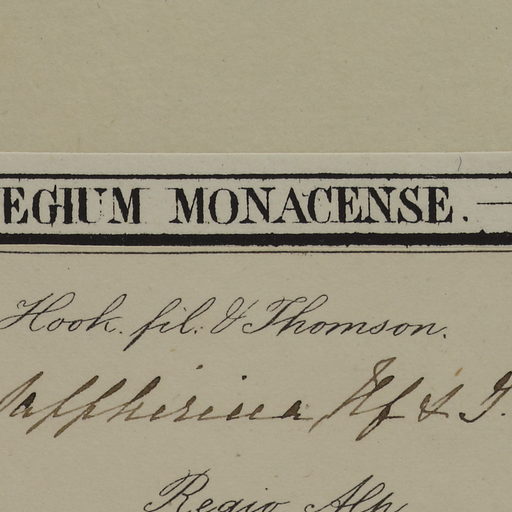 EGIUM MONACENSE. —
Hook. fil. & Thomson.
sapphirina Hf & T.
Regio Alp